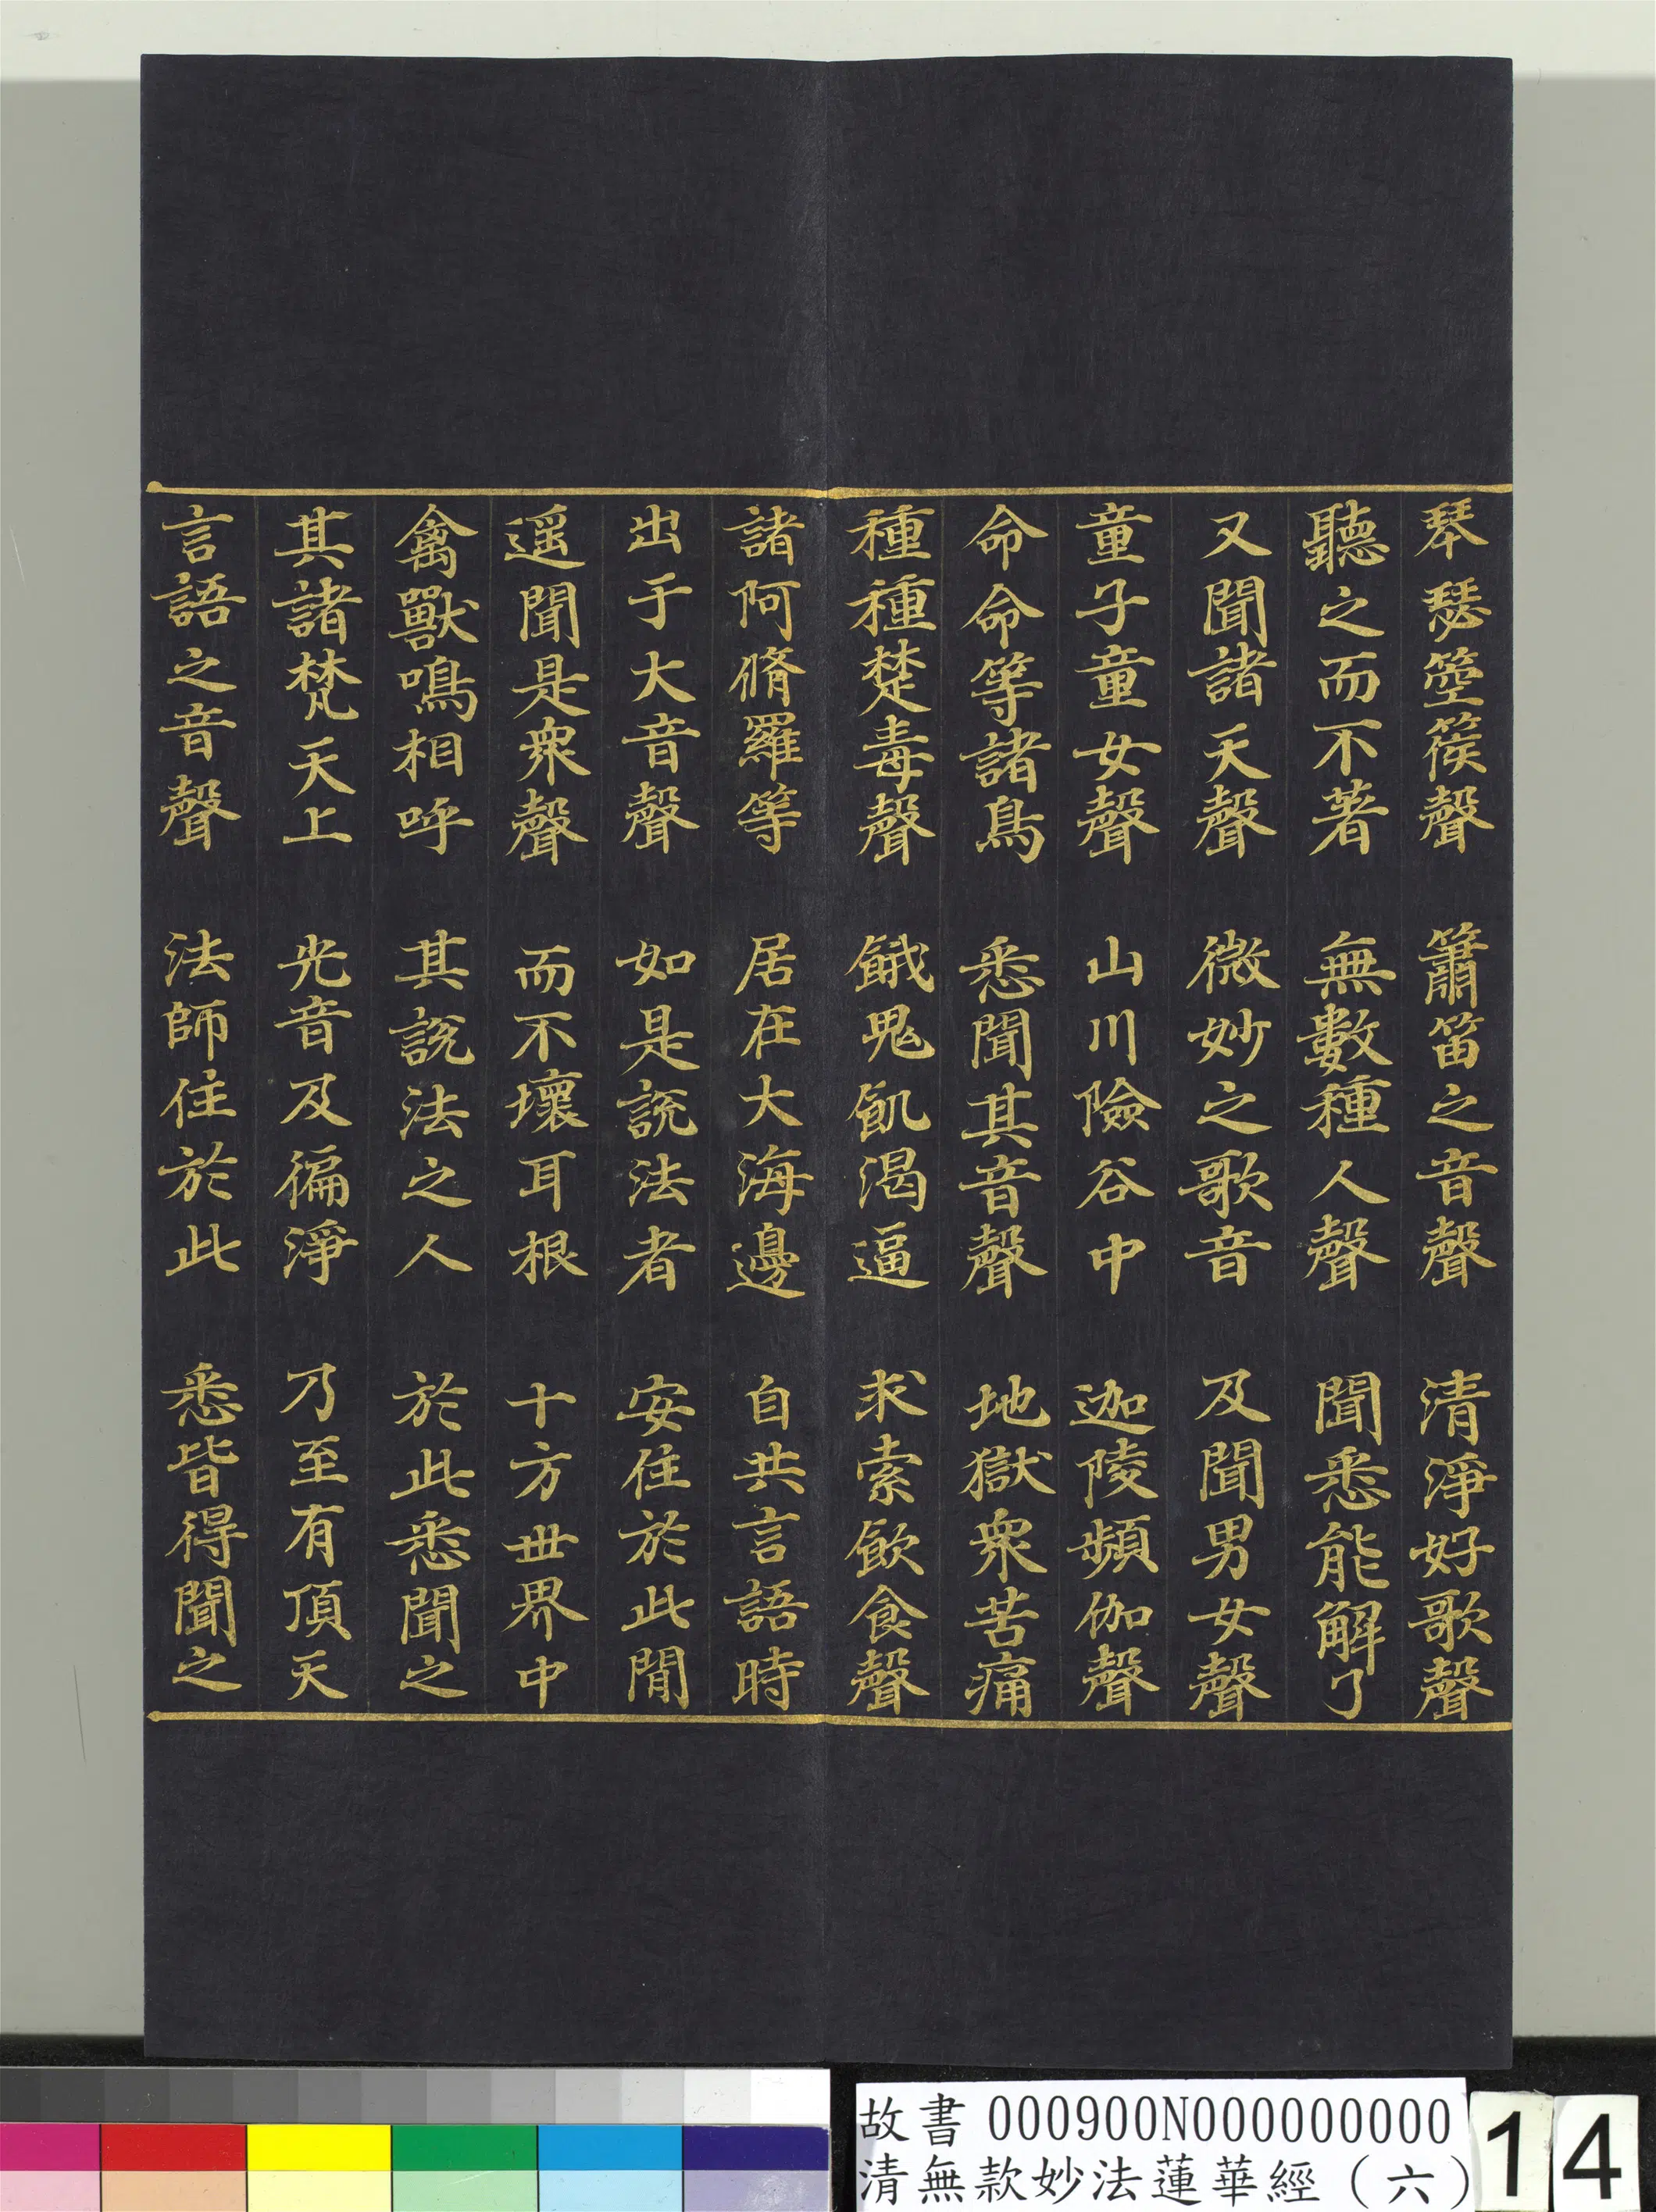 琴瑟箜篌聲　簫笛之音聲　清淨好歌聲
聽之而不著　無數種人聲　聞悉能解了
又聞諸天聲　微妙之歌音　及聞男女聲
童子童女聲　山川險谷中　迦陵頻伽聲
命命等諸鳥　悉聞其音聲　地獄衆苦痛
種種楚毒聲　餓鬼飢渴逼　求索飲食聲
諸阿脩羅等　居在大海邊　自共言語時
出于大音聲　如是說法者　安住於此閒
遥聞是衆聲　而不壞耳根　十方世界中
禽獸鳴相呼　其說法之人　於此悉聞之
其諸梵天上　光音及徧淨　乃至有頂天
言語之音聲　法師住於此　悉皆得聞之
故書 000900N000000000
清無款妙法蓮華經（六）
14